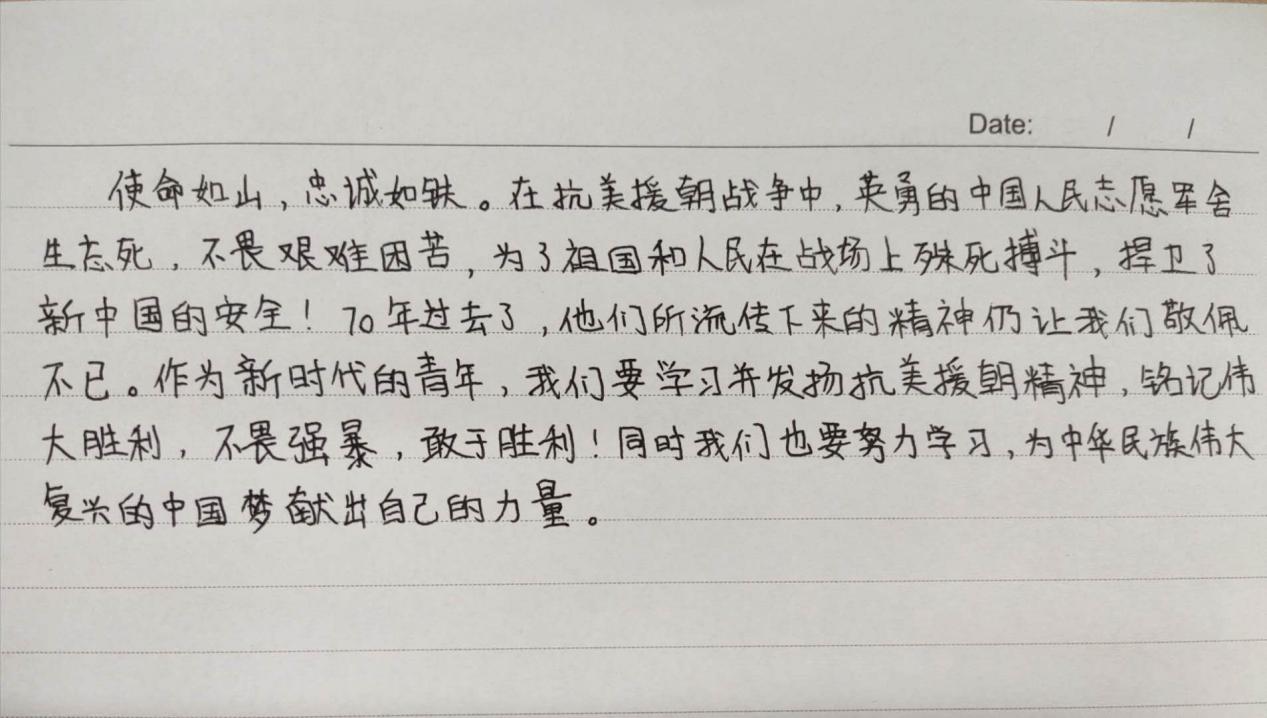 Date: / /
使命如山，忠诚如铁。在抗美援朝战争中，英勇的中国人民志愿军舍
生忘死，不畏艰难困苦，为了祖国和人民在战场上殊死搏斗，捍卫了
新中国的安全！70年过去了，他们所流传下来的精神仍让我们敬佩
不已。作为新时代的青年，我们要学习并发扬抗美援朝精神，铭记伟
大胜利，不畏强暴，敢于胜利！同时我们也要努力学习，为中华民族伟大
复兴的中国梦献出自己的力量。